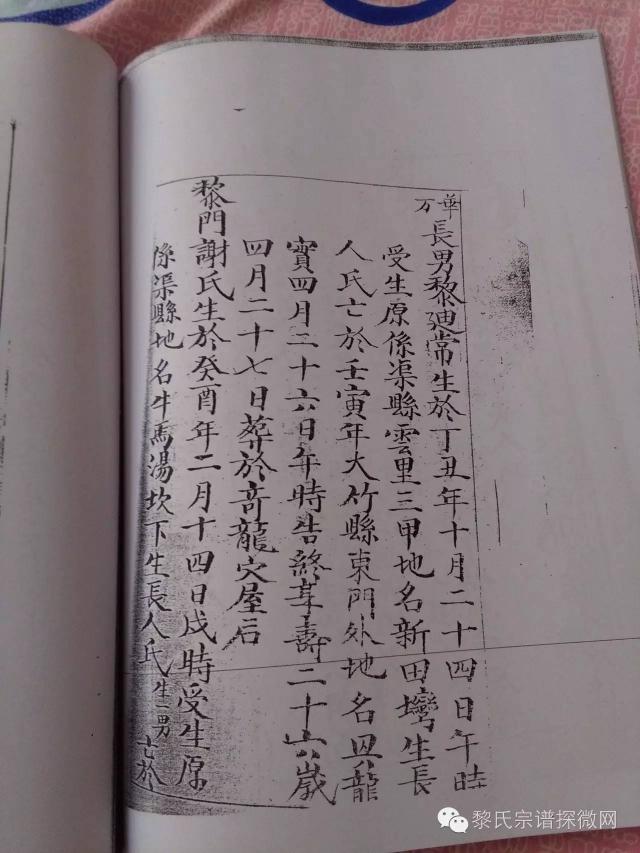 華万長男黎廸常生於丁丑年十月二十四日午時
受生原係渠縣雲里三甲地名新田灣生長
人氏亡於壬寅年大竹縣東門外地名龍
寳四月二十六日午時告終享壽二十六歲
四月二十七日葬於龍穴屋后
黎門謝氏生於癸酉年二月十四日戌時受生原
係渠縣地名牛馬湯坎下生長人氏生二男亡於
黎氏宗谱探微网